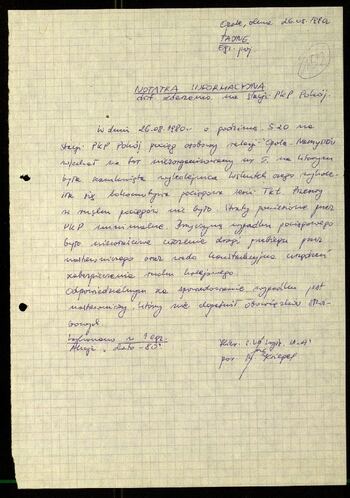 Opole, dnia 26.08.1980
TAJNE
Egz. poj.
NOTATKA INFORMACYJNA
dot. zdarzenia na stacji PKP Pokój.
W dniu 26.08.1980r. o godzinie 5.20 na
stacji PKP Pokój pociąg osobowy relacji Opole - Namysłów
wjechał na tor nieorganizowany nr 5, na którym
była zamknięta wykolejnica. Wskutek czego wykole-
iła się lokomotywa pociągowa serii Tkt. Przerwy
w ruchu pociągów nie było. Straty poniesione przez
PKP minimalne. Przyczyną wypadku pociągowego
było niewłaściwe ułożenie drogi przebiegu przez
nastawniczego oraz wada konstrukcyjna urządzeń
zabezpieczenia ruchu kolejowego.
Odpowiedzialnym za spowodowanie wypadku jest
nastawniczy, który nie dopełnił obowiązków służ-
bowych.
Wykonano w 1 egz.
Akcja "Lato-80"
Kier.
por.